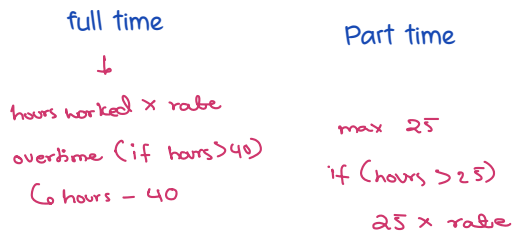 full time
↓
hours worked × rate
overtime (if hours>40)
↳ hours - 40
Part time
max 25
if (hours >25)
25 × rate